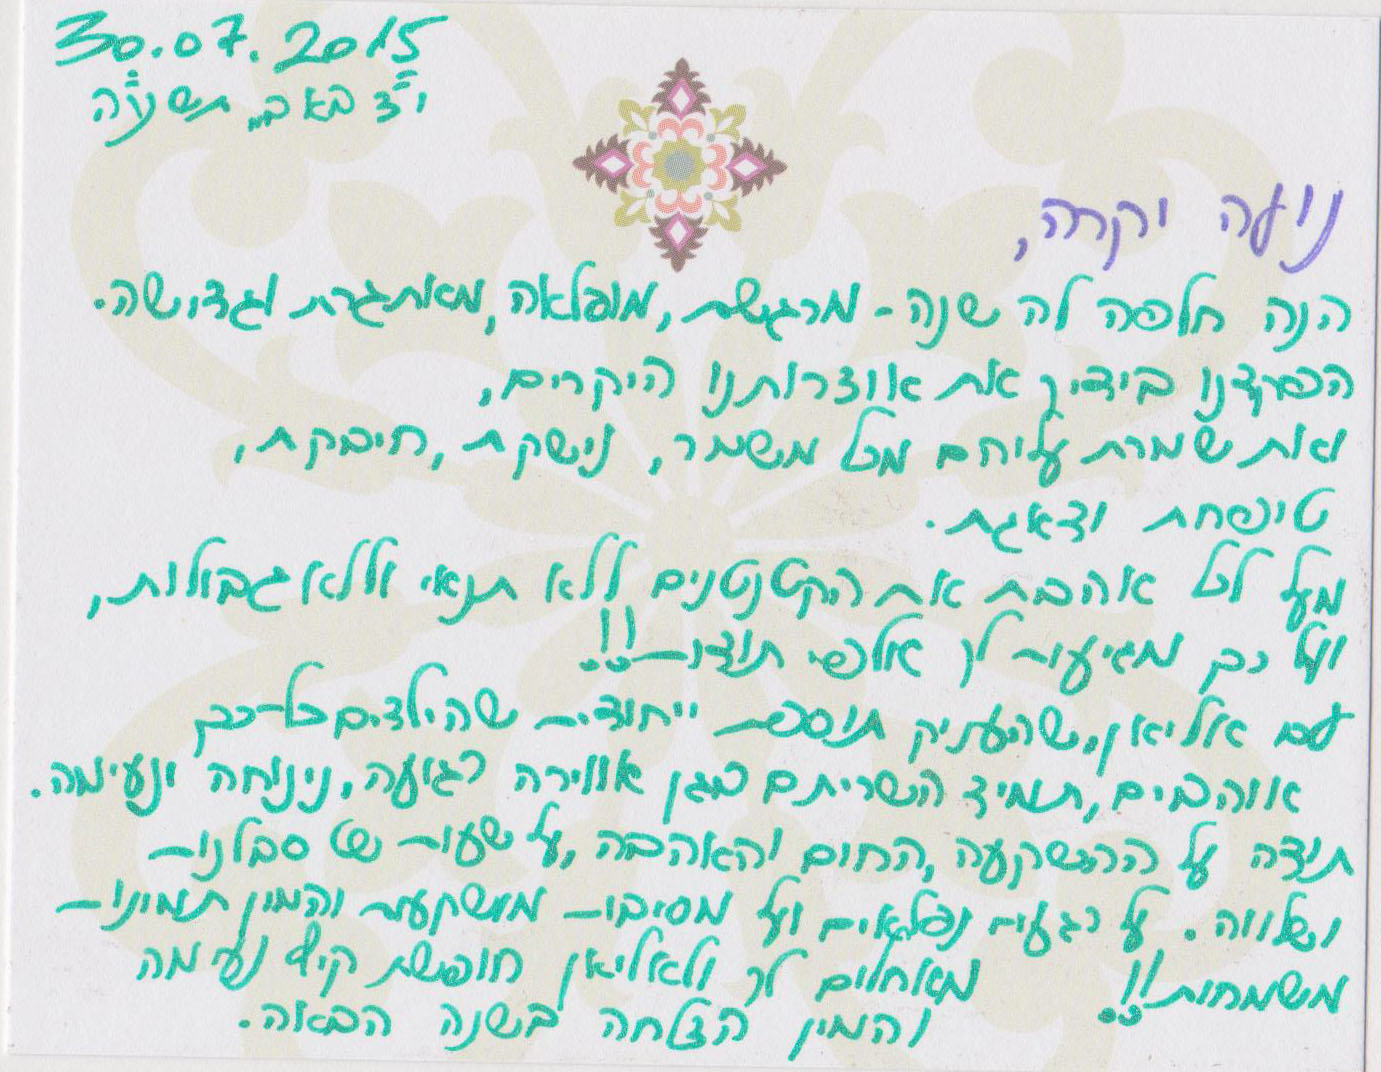 30.07.2015
י"ד באב, תשע"ה
נועה יקרה,
הנה חלפה לה שנה - מרגשת, מופלאה, מאתגרת וגדושה.
הפקדנו בידיך את אוצרותנו היקרים,
ואת שמרת עליהם מכל משמר, נישקת, חיבקת,
טיפחת ודאגת.
מעל לכל אהבת את הקטנטנים ללא תנאי וללא גבולות,
ועל כך מגיעות לך אלפי תודות!!
עם אליאן, שהעניק תוספת ייחודית שהילדים כל-כך
אוהבים, תמיד השריתם בגן אווירה רגועה, נינוחה ונעימה.
תודה על ההשקעה, החום והאהבה, על שעות של סבלנות
ושלווה. על רגעים נפלאים ועל מסיבות מושקעות והמון תמונות
משמחות!! מאחלים לך ולאליאן חופשת קיץ נעימה
והמון הצלחה בשנה הבאה.